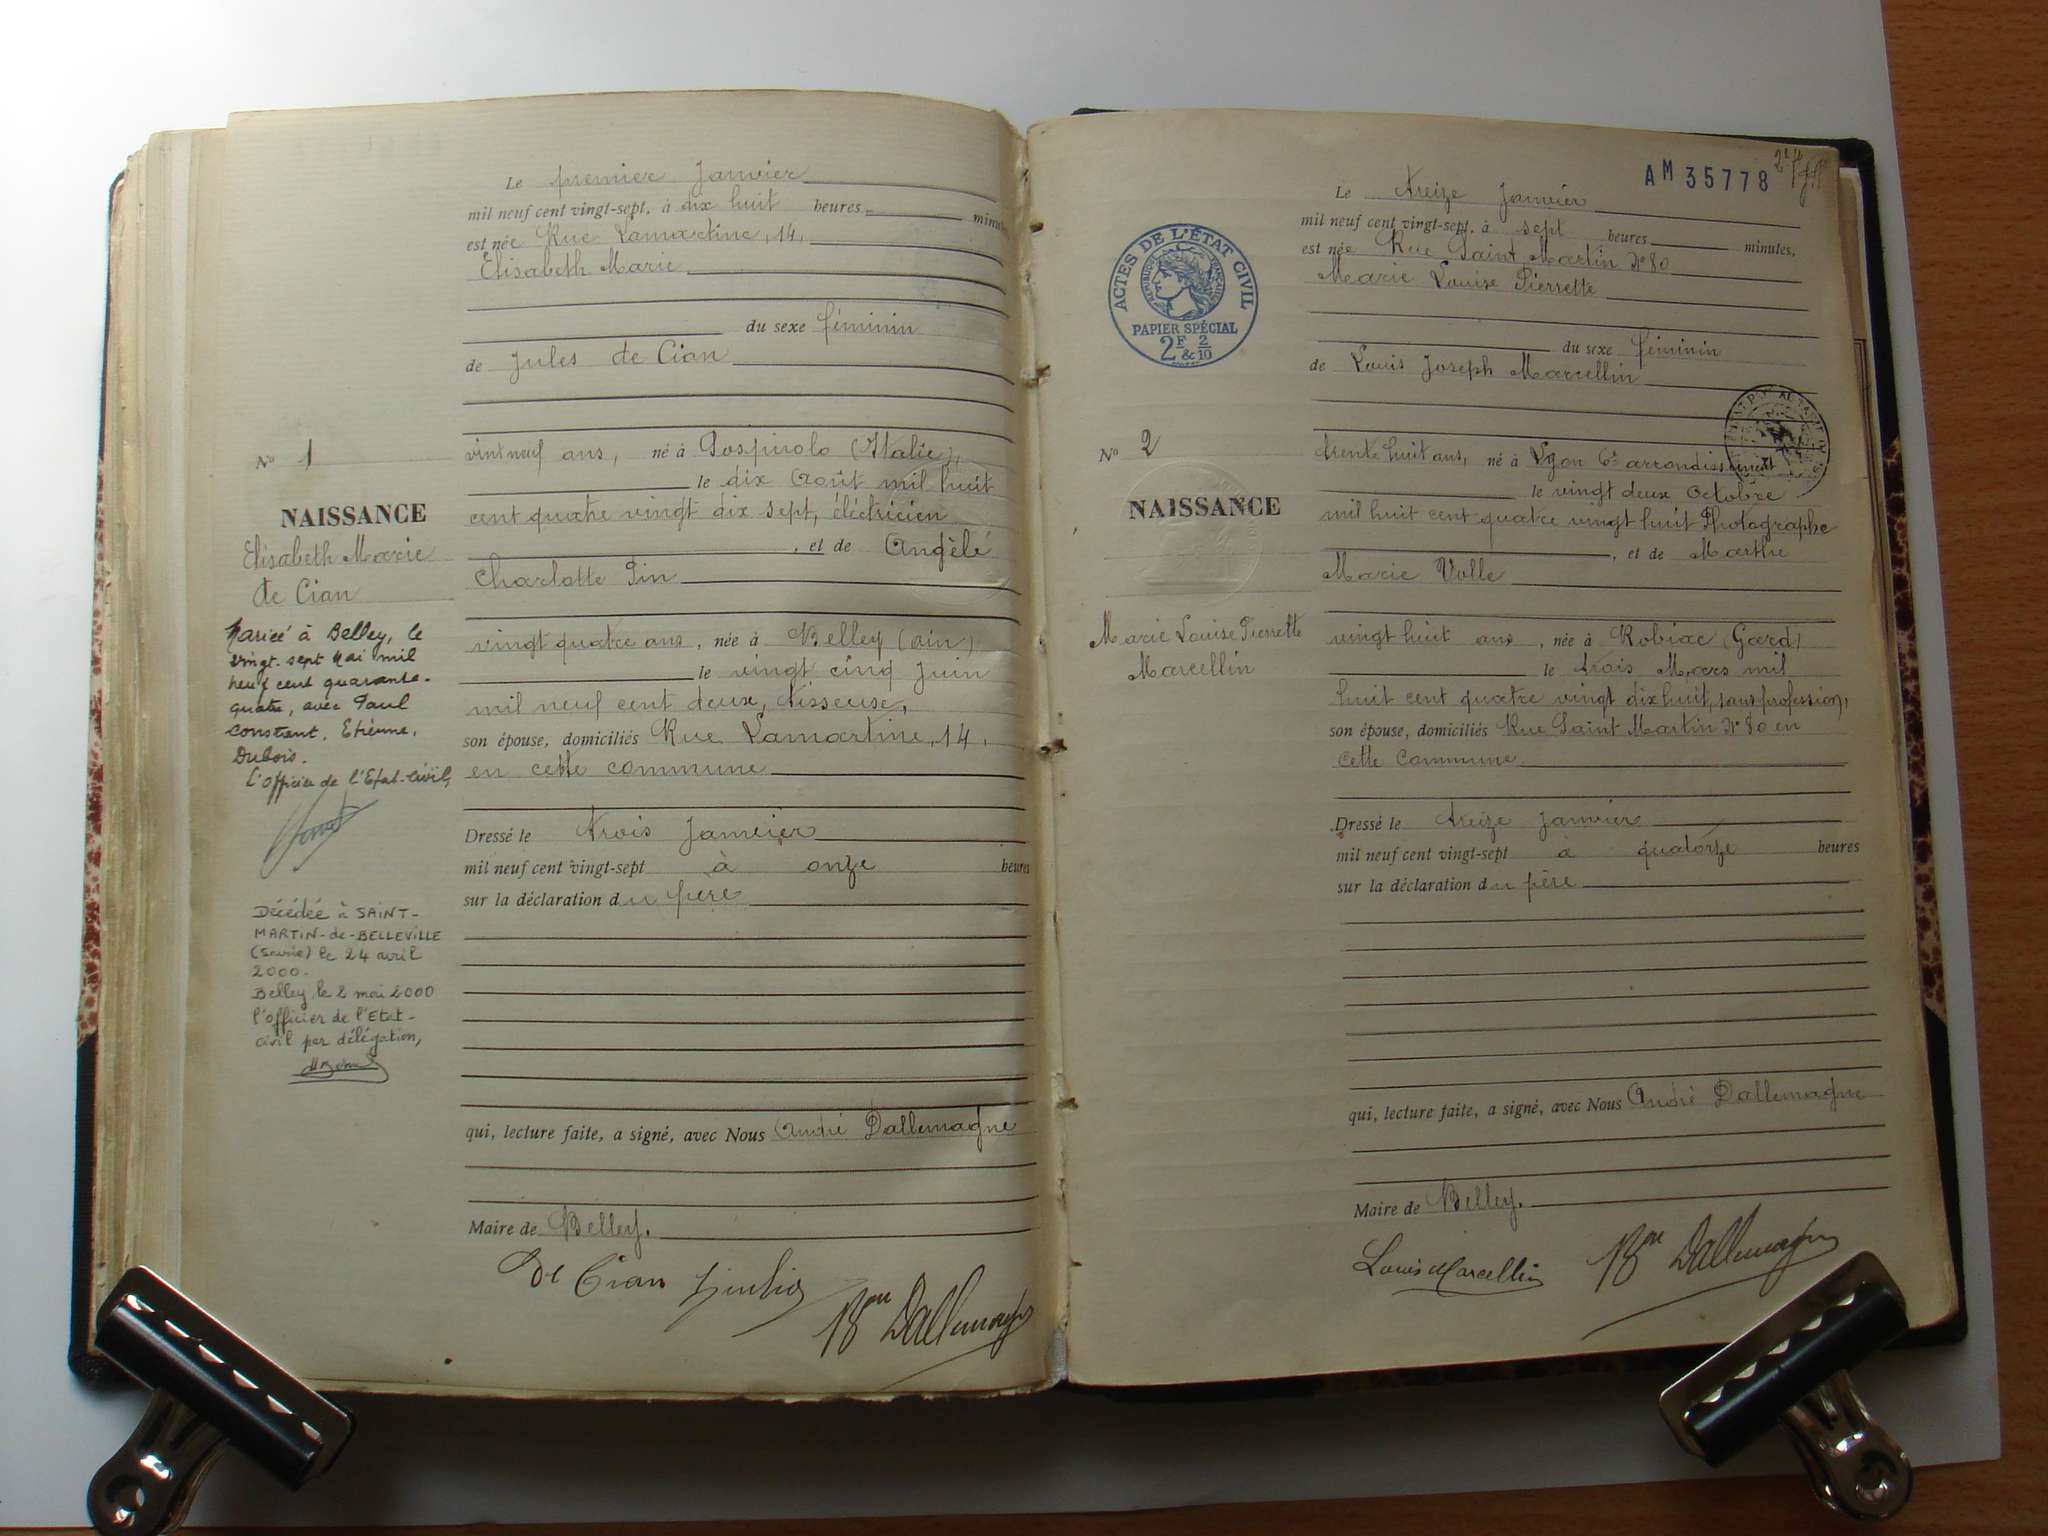 Le premier Janvier
mil neuf cent vingt-sept, à dix huit heures minutes
est née Rue Lamartine, 14,
Elisabeth Marie
du sexe féminin
de Jules de Cian
N° 1
vint neuf ans, né à Sospirolo (Italie),
le dix Août mil huit
NAISSANCE
cent quatre vingt dix sept, électricien
Elisabeth Marie
de Cian
, et de Angèle
Charlotte Pin
Mariée à Belley, le
vingt-sept Mai mil
neuf cent quarante-
quatre, avec Paul
Constant, Etienne,
Dubois.
L'officier de l'Etat-Civil,
vingt quatre ans, née à Belley (ain)
le vingt cinq Juin
mil neuf cent deux, tisseuse,
son épouse, domiciliés Rue Lamartine, 14,
en cette commune
Dressé le trois Janvier
mil neuf cent vingt-sept à onze heures
sur la déclaration du père
Décédée à SAINT-
MARTIN-de-BELLEVILLE
(Savoie) le 24 avril
2000.
Belley, le 2 mai 2000
l'officier de l'Etat-
civil par délégation,
qui, lecture faite, a signé, avec Nous André Dallemagne
Maire de Belley.
De Cian
Bon Dallemagne
AM 35778
Le treize Janvier
mil neuf cent vingt-sept, à sept heures minutes,
est née Rue Saint Martin N° 80
Marie Louise Pierrette
ACTES DE L'ÉTAT CIVIL
RÉPUBLIQUE FRANÇAISE
PAPIER SPÉCIAL
2F & 2/10
du sexe féminin
de Louis Joseph Marcellin
N° 2
trente huit ans, né à Lyon 6e arrondissement
le vingt deux Octobre
NAISSANCE
mil huit cent quatre vingt huit Photographe
, et de Marthe
Marie Volle
Marie Louise Pierrette
Marcellin
vingt huit ans, née à Robiac (Gard)
le trois Mars mil
huit cent quatre vingt dix huit, sans profession,
son épouse, domiciliés Rue Saint Martin N° 80 en
cette commune
Dressé le treize Janvier
mil neuf cent vingt-sept à quatorze heures
sur la déclaration du père
qui, lecture faite, a signé, avec Nous André Dallemagne
Maire de Belley.
Louis Marcellin
Bon Dallemagne